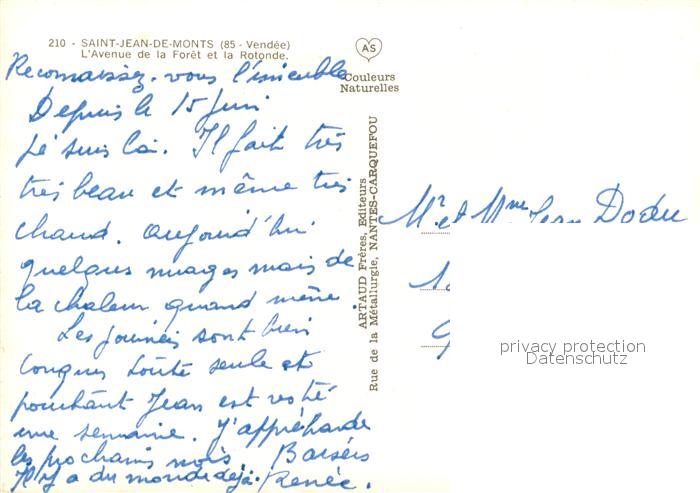 210 - SAINT-JEAN-DE-MONTS (85 - Vendée)
L'Avenue de la Forêt et la Rotonde.
AS
Couleurs
Naturelles
Reconnaissez-vous l'immeuble
Depuis le 15 Juin
je suis là. Il fait très
très beau et même très
chaud. Aujourd'hui
quelques nuages mais de
la chaleur quand même.
Les journées sont bien
longues toute seule et
pourtant Jean est resté
une semaine. J'appréhende
les prochains mois Baisers
Il y a du monde déjà. Renée.
ARTAUD Frères, Editeurs
Rue de la Métallurgie, NANTES-CARQUEFOU
Mr et Mme Jean Dodu
privacy protection
Datenschutz